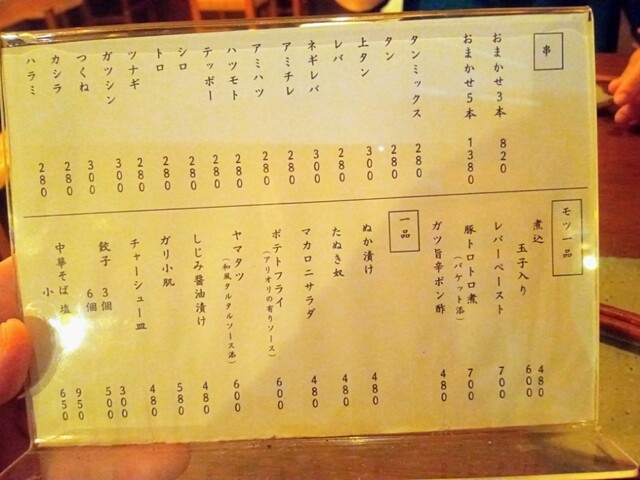 串
おまかせ3本 820
おまかせ5本 1380
タンミックス 280
タン 280
上タン 300
レバ 280
ネギレバ 300
アミチレ 280
アミハツ 280
ハツモト 280
テッポー 280
シロ 280
トロ 280
ツナギ 280
ガツシン 300
つくね 300
カシラ 280
ハラミ 280
モツ一品
煮込 480
玉子入り 600
レバーペースト 700
豚トロトロ煮 700
(バケット添)
ガツ旨辛ポン酢 480
一品
ぬか漬け 480
たぬき奴 480
マカロニサラダ 480
ポテトフライ 600
(アリオリの有りソース)
ヤマタツ 600
(和風タルタルソース添)
しじみ醤油漬け 480
ガリ小肌 580
チャーシュー皿 480
餃子 3個 300
6個 500
中華そば 塩 950
小 650